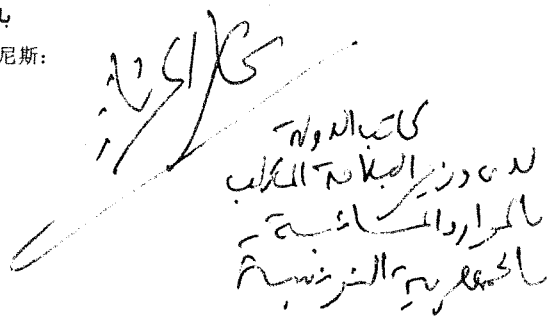 با
尼斯：
كاتب الدولة
لدى وزير الفلاحة المكلف
بالموارد المائية
بالجمهورية التونسية